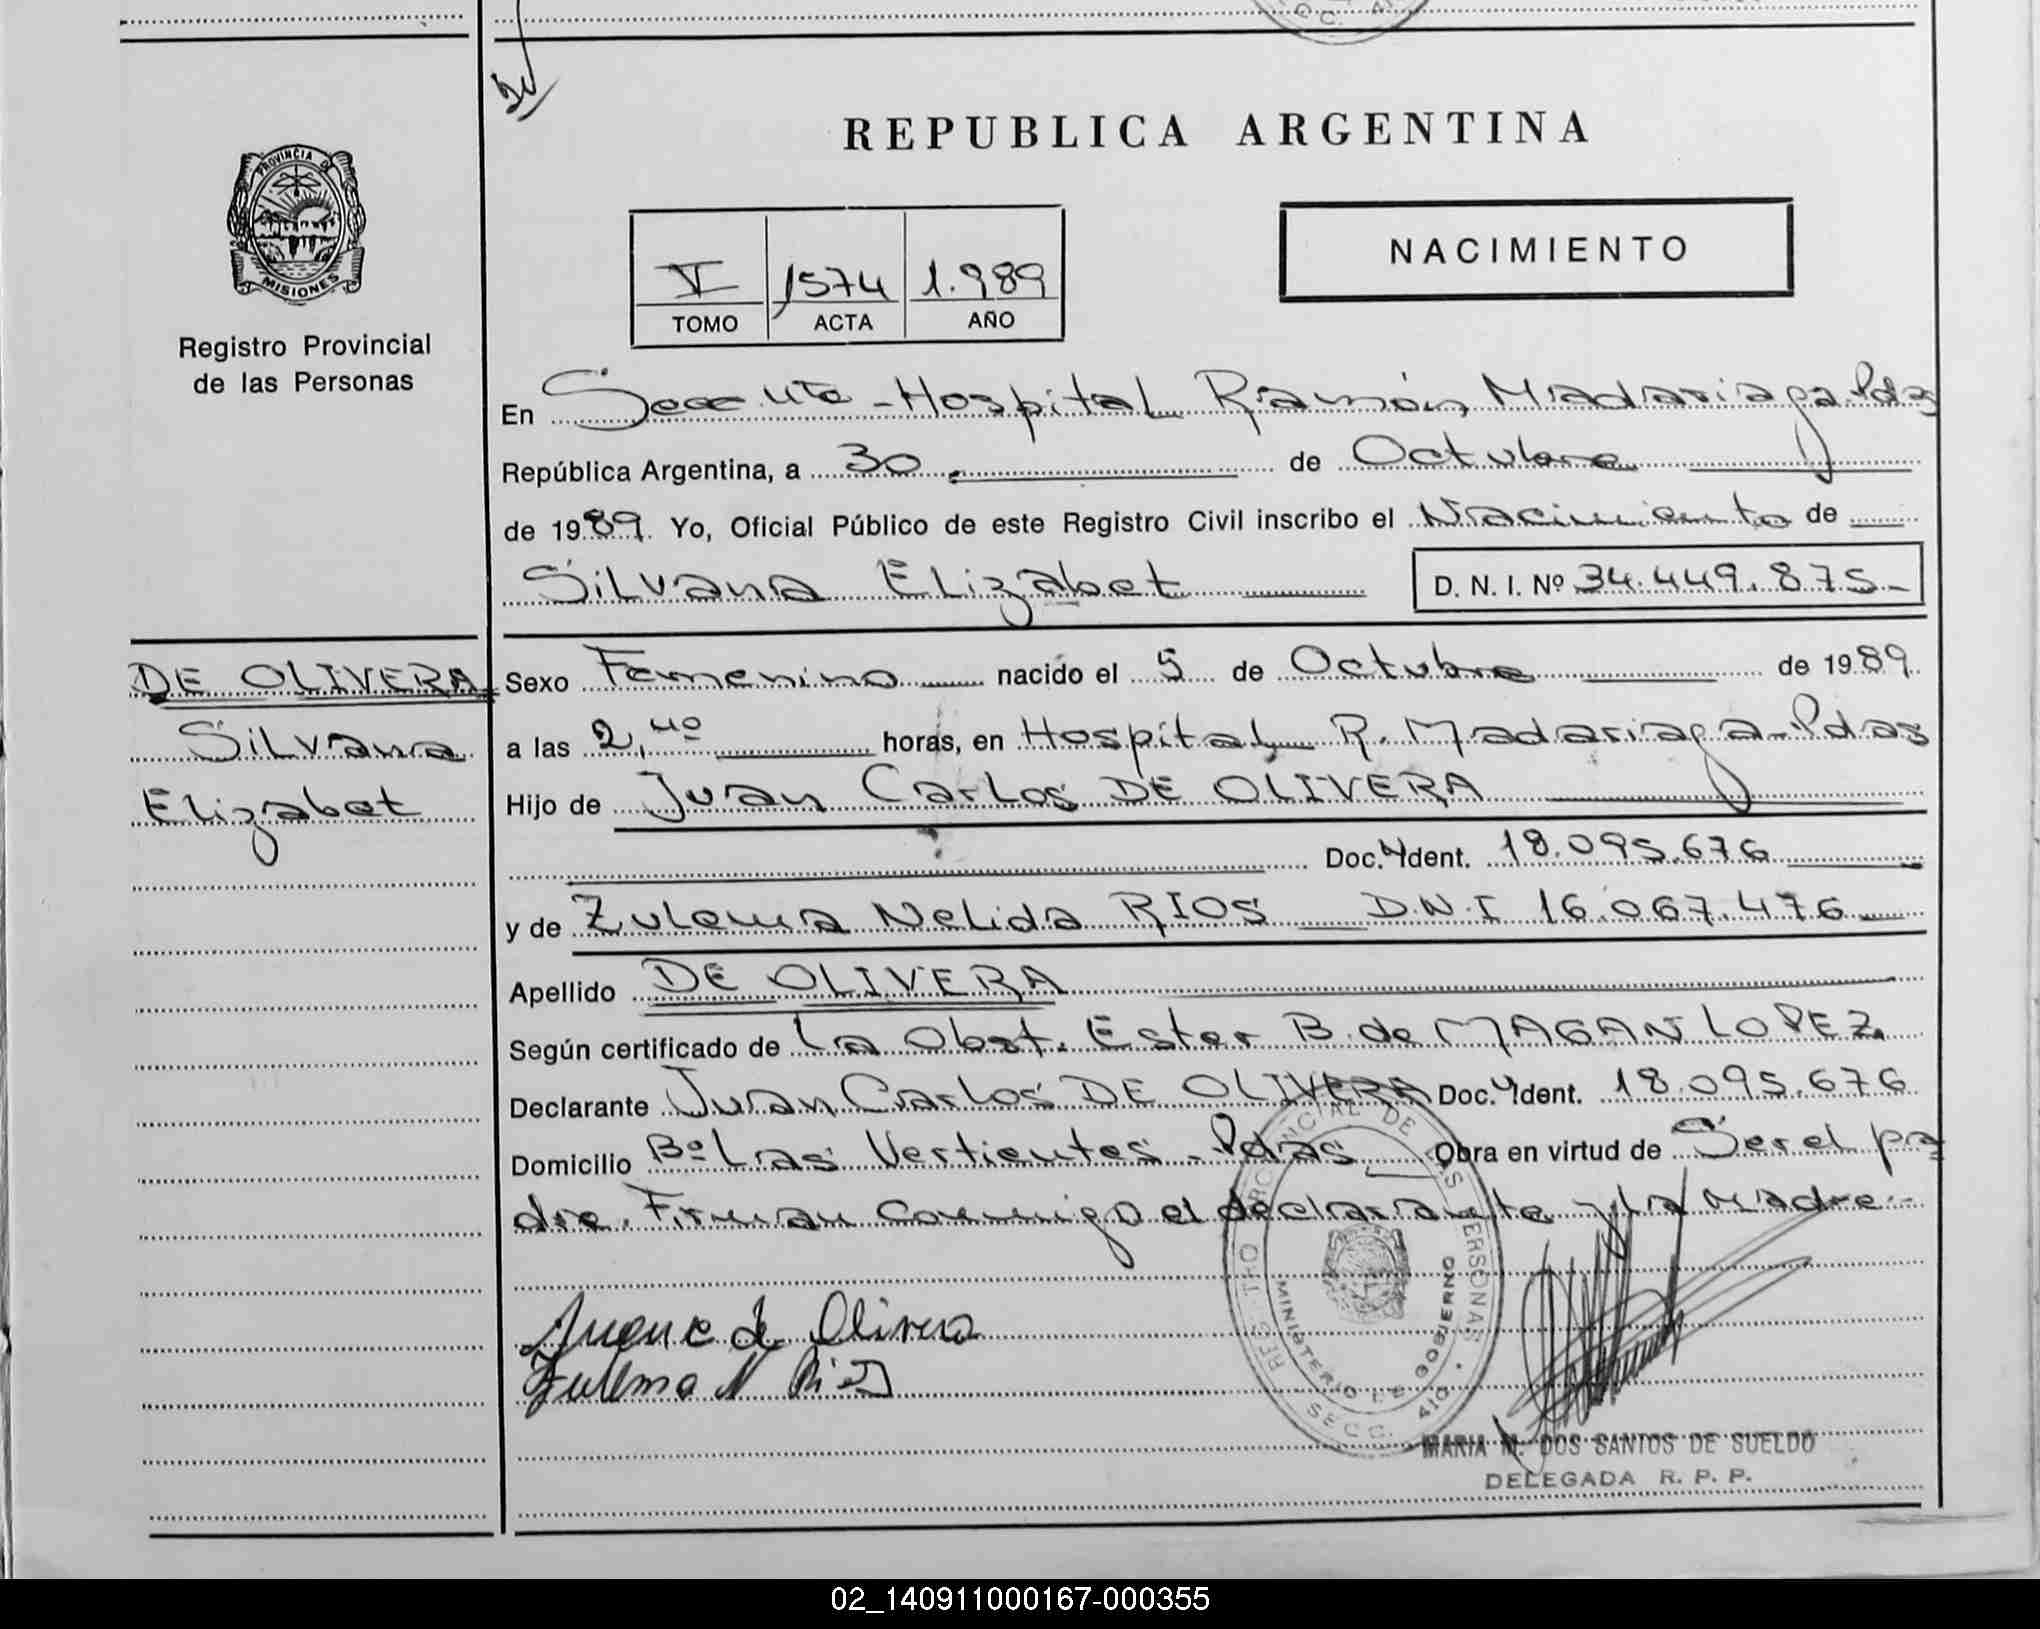 REPUBLICA ARGENTINA
PROVINCIA DE
MISIONES
Registro Provincial
de las Personas
NACIMIENTO
V 1574 1.989
TOMO ACTA AÑO
En Hospital Ramón Madariaga. Pdas
República Argentina, a 30 de Octubre
de 1989. Yo, Oficial Público de este Registro Civil inscribo el Nacimiento de
Silvana Elizabet D. N. I. Nº 34.449.875.-
DE OLIVERA
Silvana
Elizabet
Sexo Femenino nacido el 5 de Octubre de 1989.
a las 2,40 horas, en Hospital R. Madariaga-Pdas
Hijo de Juan Carlos DE OLIVERA
Doc. Ident. 18.095.676
y de Zulema Nelida RIOS D.N.I 16.067.476
Apellido DE OLIVERA
Según certificado de La Obst. Ester B. de MAGAN LOPEZ.
Declarante Juan Carlos DE OLIVERA Doc. Ident. 18.095.676
Domicilio Bº Las Vertientes - Pdas Obra en virtud de Ser el pa
dre. Firman conmigo el declarante y la Madre.-
de Olivera
Zulema N Rios
REGISTRO PROVINCIAL DE LAS PERSONAS
MINISTERIO DE GOBIERNO
SECC.
MARIA M. DOS SANTOS DE SUELDO
DELEGADA R. P. P.
02_140911000167-000355